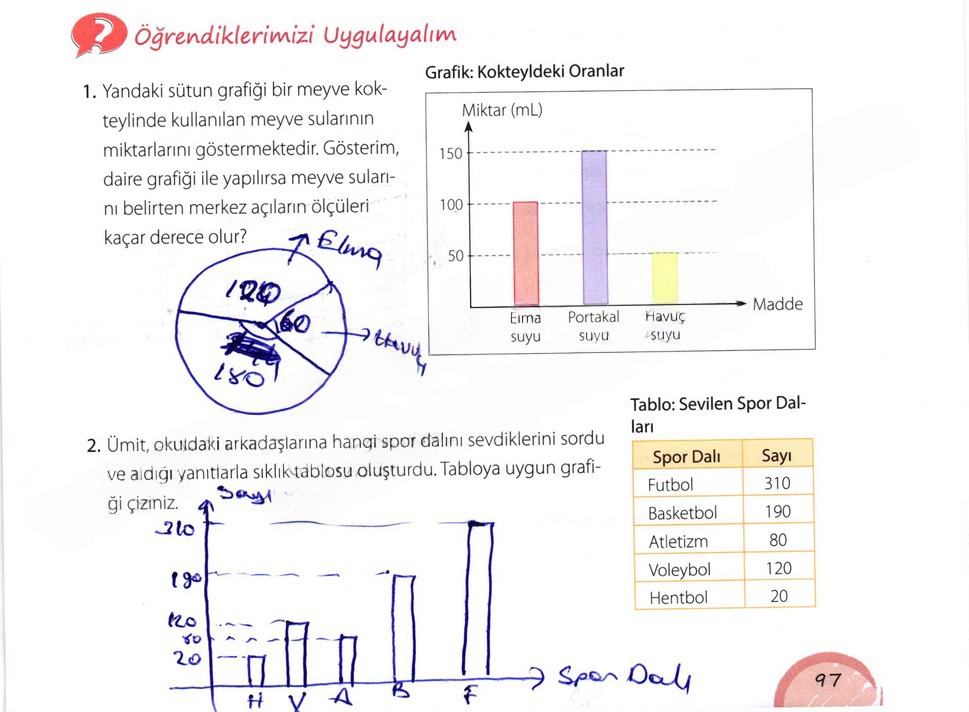 ?
Öğrendiklerimizi Uygulayalım
1. Yandaki sütun grafiği bir meyve kok-
teylinde kullanılan meyve sularının
miktarlarını göstermektedir. Gösterim,
daire grafiği ile yapılırsa meyve suları-
nı belirten merkez açıların ölçüleri
kaçar derece olur?
Elma
120
60
Havuç
180
Grafik: Kokteyldeki Oranlar
Miktar (mL)
150
100
50
Elma suyu
Portakal suyu
Havuç suyu
Madde
2. Ümit, okuldaki arkadaşlarına hangi spor dalını sevdiklerini sordu
ve aldığı yanıtlarla sıklık tablosu oluşturdu. Tabloya uygun grafi-
ği çiziniz.
Sayı
310
190
120
80
20
H V A B F
Spor Dalı
Tablo: Sevilen Spor Dal-
ları
Spor Dalı Sayı
Futbol 310
Basketbol 190
Atletizm 80
Voleybol 120
Hentbol 20
97